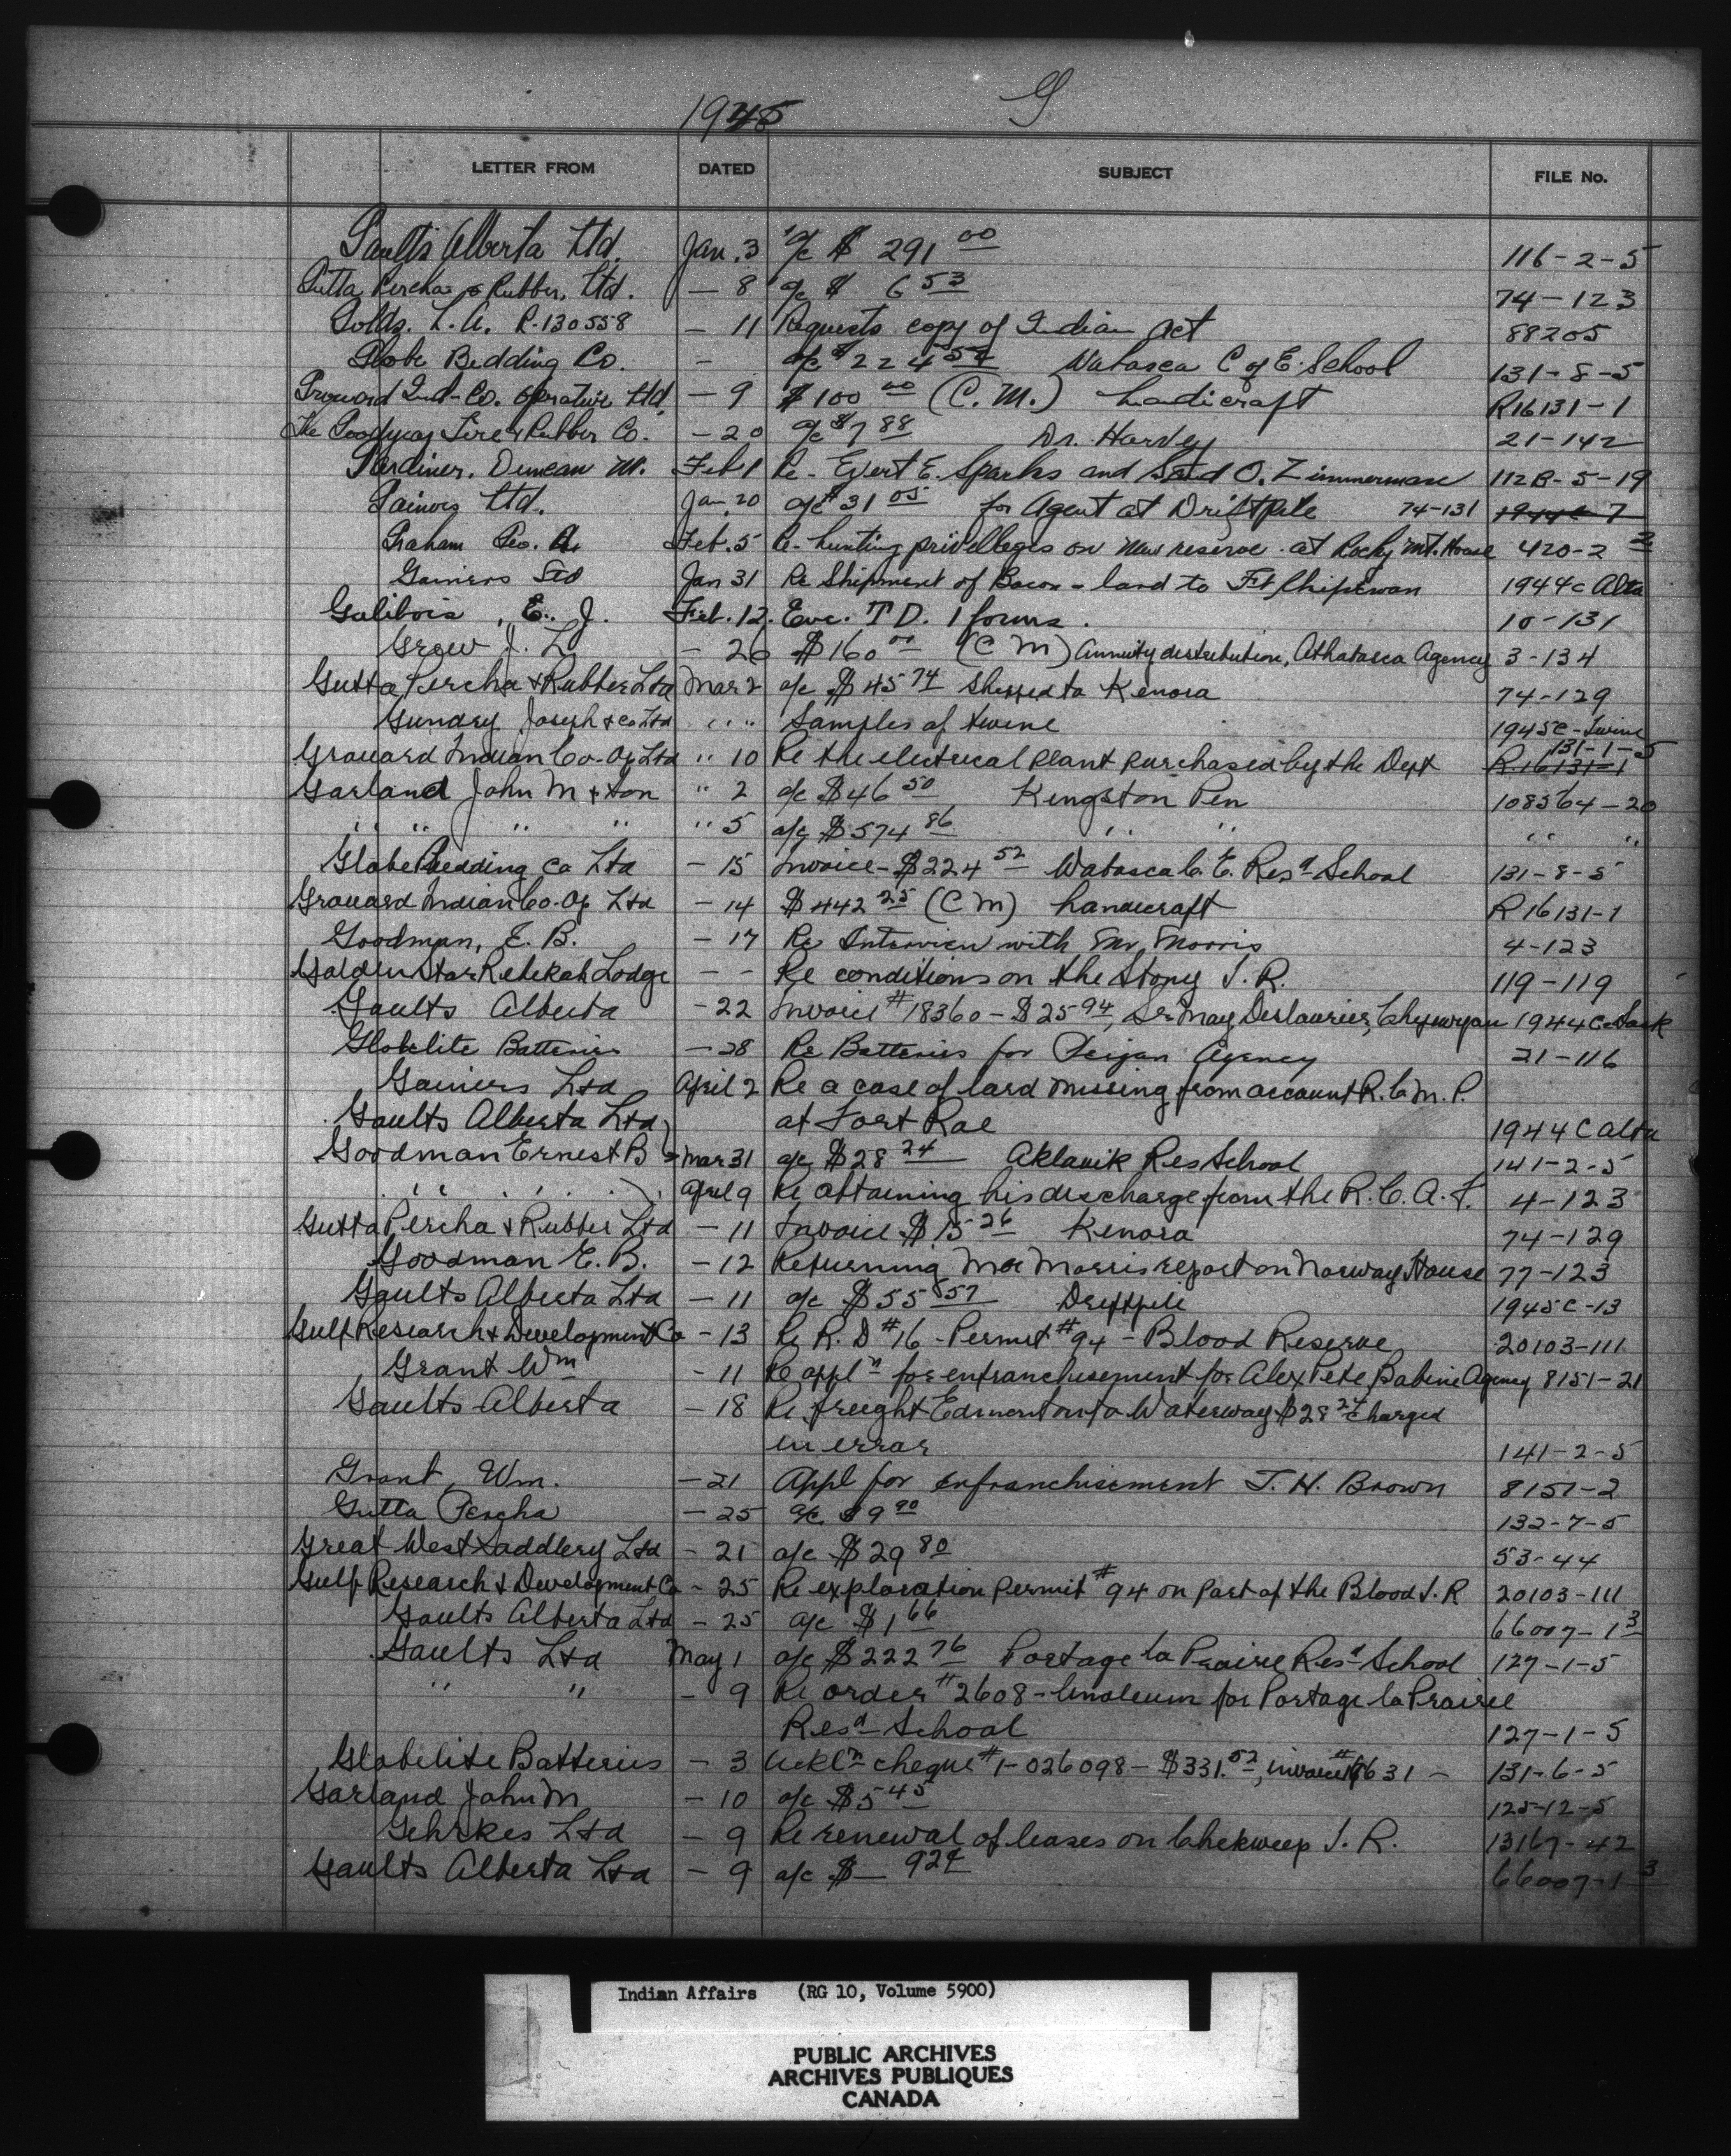 1945
G
LETTER FROM DATED SUBJECT FILE No.
Gaults Alberta Ltd. Jan. 3 a/c $ 291 00 116-2-5
Gutta Percha & Rubber, Ltd. - 8 a/c $ 6 53 74-123
Golds. L. A. R-130558 - 11 Requests copy of Indian Act 88205
Globe Bedding Co. - a/c $224 52 Wabasca C of E. School 131-8-5
Grouard Ind-Co. operative Ltd. - 9 $100 00 (C. M.) handicraft R16131-1
The Goodyear Tire & Rubber Co. - 20 a/c $7 88 Dr. Harvey 21-142
Gardiner. Duncan M. Feb 1 Re- Evert E. Sparks and O. Zimmerman 112B-5-19
Gainers Ltd. Jan. 20 a/c $31 05 for Agent at Driftpile 74-131
Graham Geo. A. Feb. 5 Re- hunting privelleges on new reserve. at Rocky Mt. House 420-2 2
Gainers Ltd Jan 31 Re Shipment of Bacon - lard to Ft Chipewan 1944c Alta
Galibois, E. J. Feb. 12. Enc. T D. 1 forms. 10-131
Grew J. L. - 26 $160 00 (C M) Annuity distribution, Athabasca Agency 3-134
Gutta Percha & Rubber Ltd Mar 2 a/c $45 74 Shipped to Kenora 74-129
Gundry Joseph & Co Ltd " " Samples of twine 1945c-Twine
Grouard Indian Co-Op Ltd " 10 Re the electrical plant purchased by the Dept 131-1-5
R16131-1
Garland John M & Son " 2 a/c $46 50 Kingston Pen 108564-20
" " " " " 5 a/c $574 86 " " " "
Globe Bedding Co Ltd - 15 Invoice - $224 52 Wabasca C. E. Resd School 131-8-5
Grouard Indian Co-Op Ltd - 14 $442 25 (C M) handicraft R16131-1
Goodman, E. B. - 17 Re Interview with Mr. Morris 4-123
Golden Star Rebekah Lodge - - Re conditions on the Stony I. R. 119-119
Gaults Alberta - 22 Invoice #18360 - $25 94, Sr May Deslaurier, Chipewyan 1944C-Sask
Globelite Batteries - 28 Re Batteries for Peigan Agency 21-116
Gainers Ltd April 2 Re a case of lard missing from account R. C. M. P.
Gaults Alberta Ltd at Fort Rae 1944 C Alta
Goodman Ernest B Mar 31 a/c $28 24 Aklavik Res School 141-2-5
" " " April 9 Re obtaining his discharge from the R. C. A. F. 4-123
Gutta Percha & Rubber Ltd - 11 Invoice $15 26 Kenora 74-129
Goodman E. B. - 12 Returning Mr Morris report on Norway House 77-123
Gaults Alberta Ltd - 11 a/c $55 57 Driftpile 1945C-13
Gulf Research & Development Co - 13 Re R. D #16 - Permit #94 - Blood Reserve 20103-111
Grant Wm - 11 Re appln for enfranchisement for Alex Pete Babine Agency 8151-21
Gaults Alberta - 18 Re freight Edmonton to Waterway $28 24 charged
in error 141-2-5
Grant, Wm. - 21 Appl for enfranchisement T. H. Brown 8151-2
Gutta Percha - 25 a/c $9 90 132-7-5
Great West Saddlery Ltd - 21 a/c $29 80 53-44
Gulf Research & Development Co - 25 Re exploration permit #94 on part of the Blood I. R 20103-111
Gaults Alberta Ltd - 25 a/c $1 66 66007-1 3
Gaults Ltd May 1 a/c $222 76 Portage la Prairie Resd School 127-1-5
" " - 9 Re order #2608 - linoleum for Portage la Prairie
Resd School 127-1-5
Globelite Batteries - 3 Ackln cheque #1-026098 - $331.52, invoice # 131-6-5
Garland John M - 10 a/c $5 45 125-12-5
Gehrkes Ltd - 9 Re renewal of leases on Chekweep I. R. 13167-42
Gaults Alberta Ltd - 9 a/c $ - 92¢ 66007-1 3
Indian Affairs (RG 10, Volume 5900)
PUBLIC ARCHIVES
ARCHIVES PUBLIQUES
CANADA